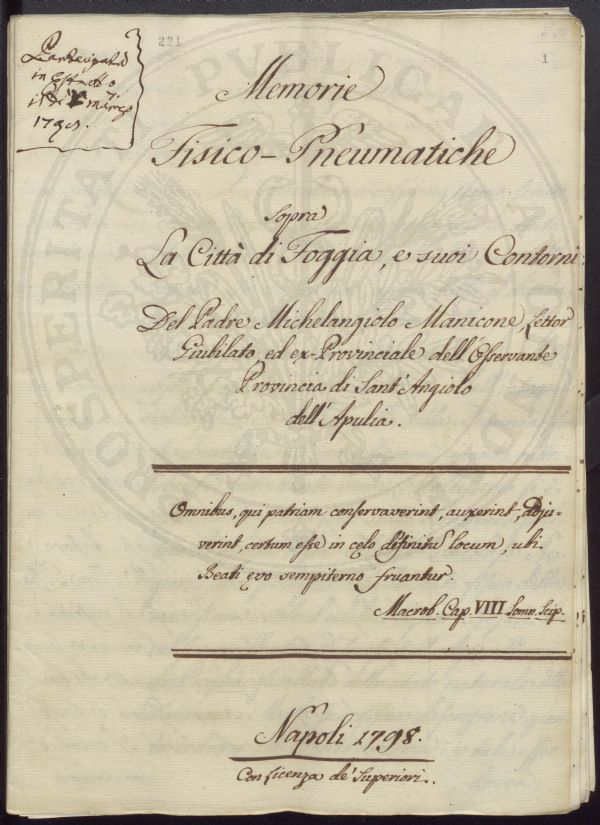 Partecipata
in Estratto
7.
marzo
221
1
Memorie
Fisico-Pneumatiche
sopra
La Città di Foggia, e suoi Contorni
Del Padre Michelangiolo Manicone, Lettor
Giubilato, ed ex-Provinciale dell'Osservante
Provincia di Sant'Angiolo
dell'Apulia.
Omnibus, qui patriam conservaverint, auxerint, adju-
verint, certum esse in cęlo definitū locum, ubi
Beati ęvo sempiterno fruantur.
Macrob. Cap. VIII Somn. Scip.
Napoli 1798.
Con licenza de' Superiori.
PROSPERITATI PUBLICAE AU